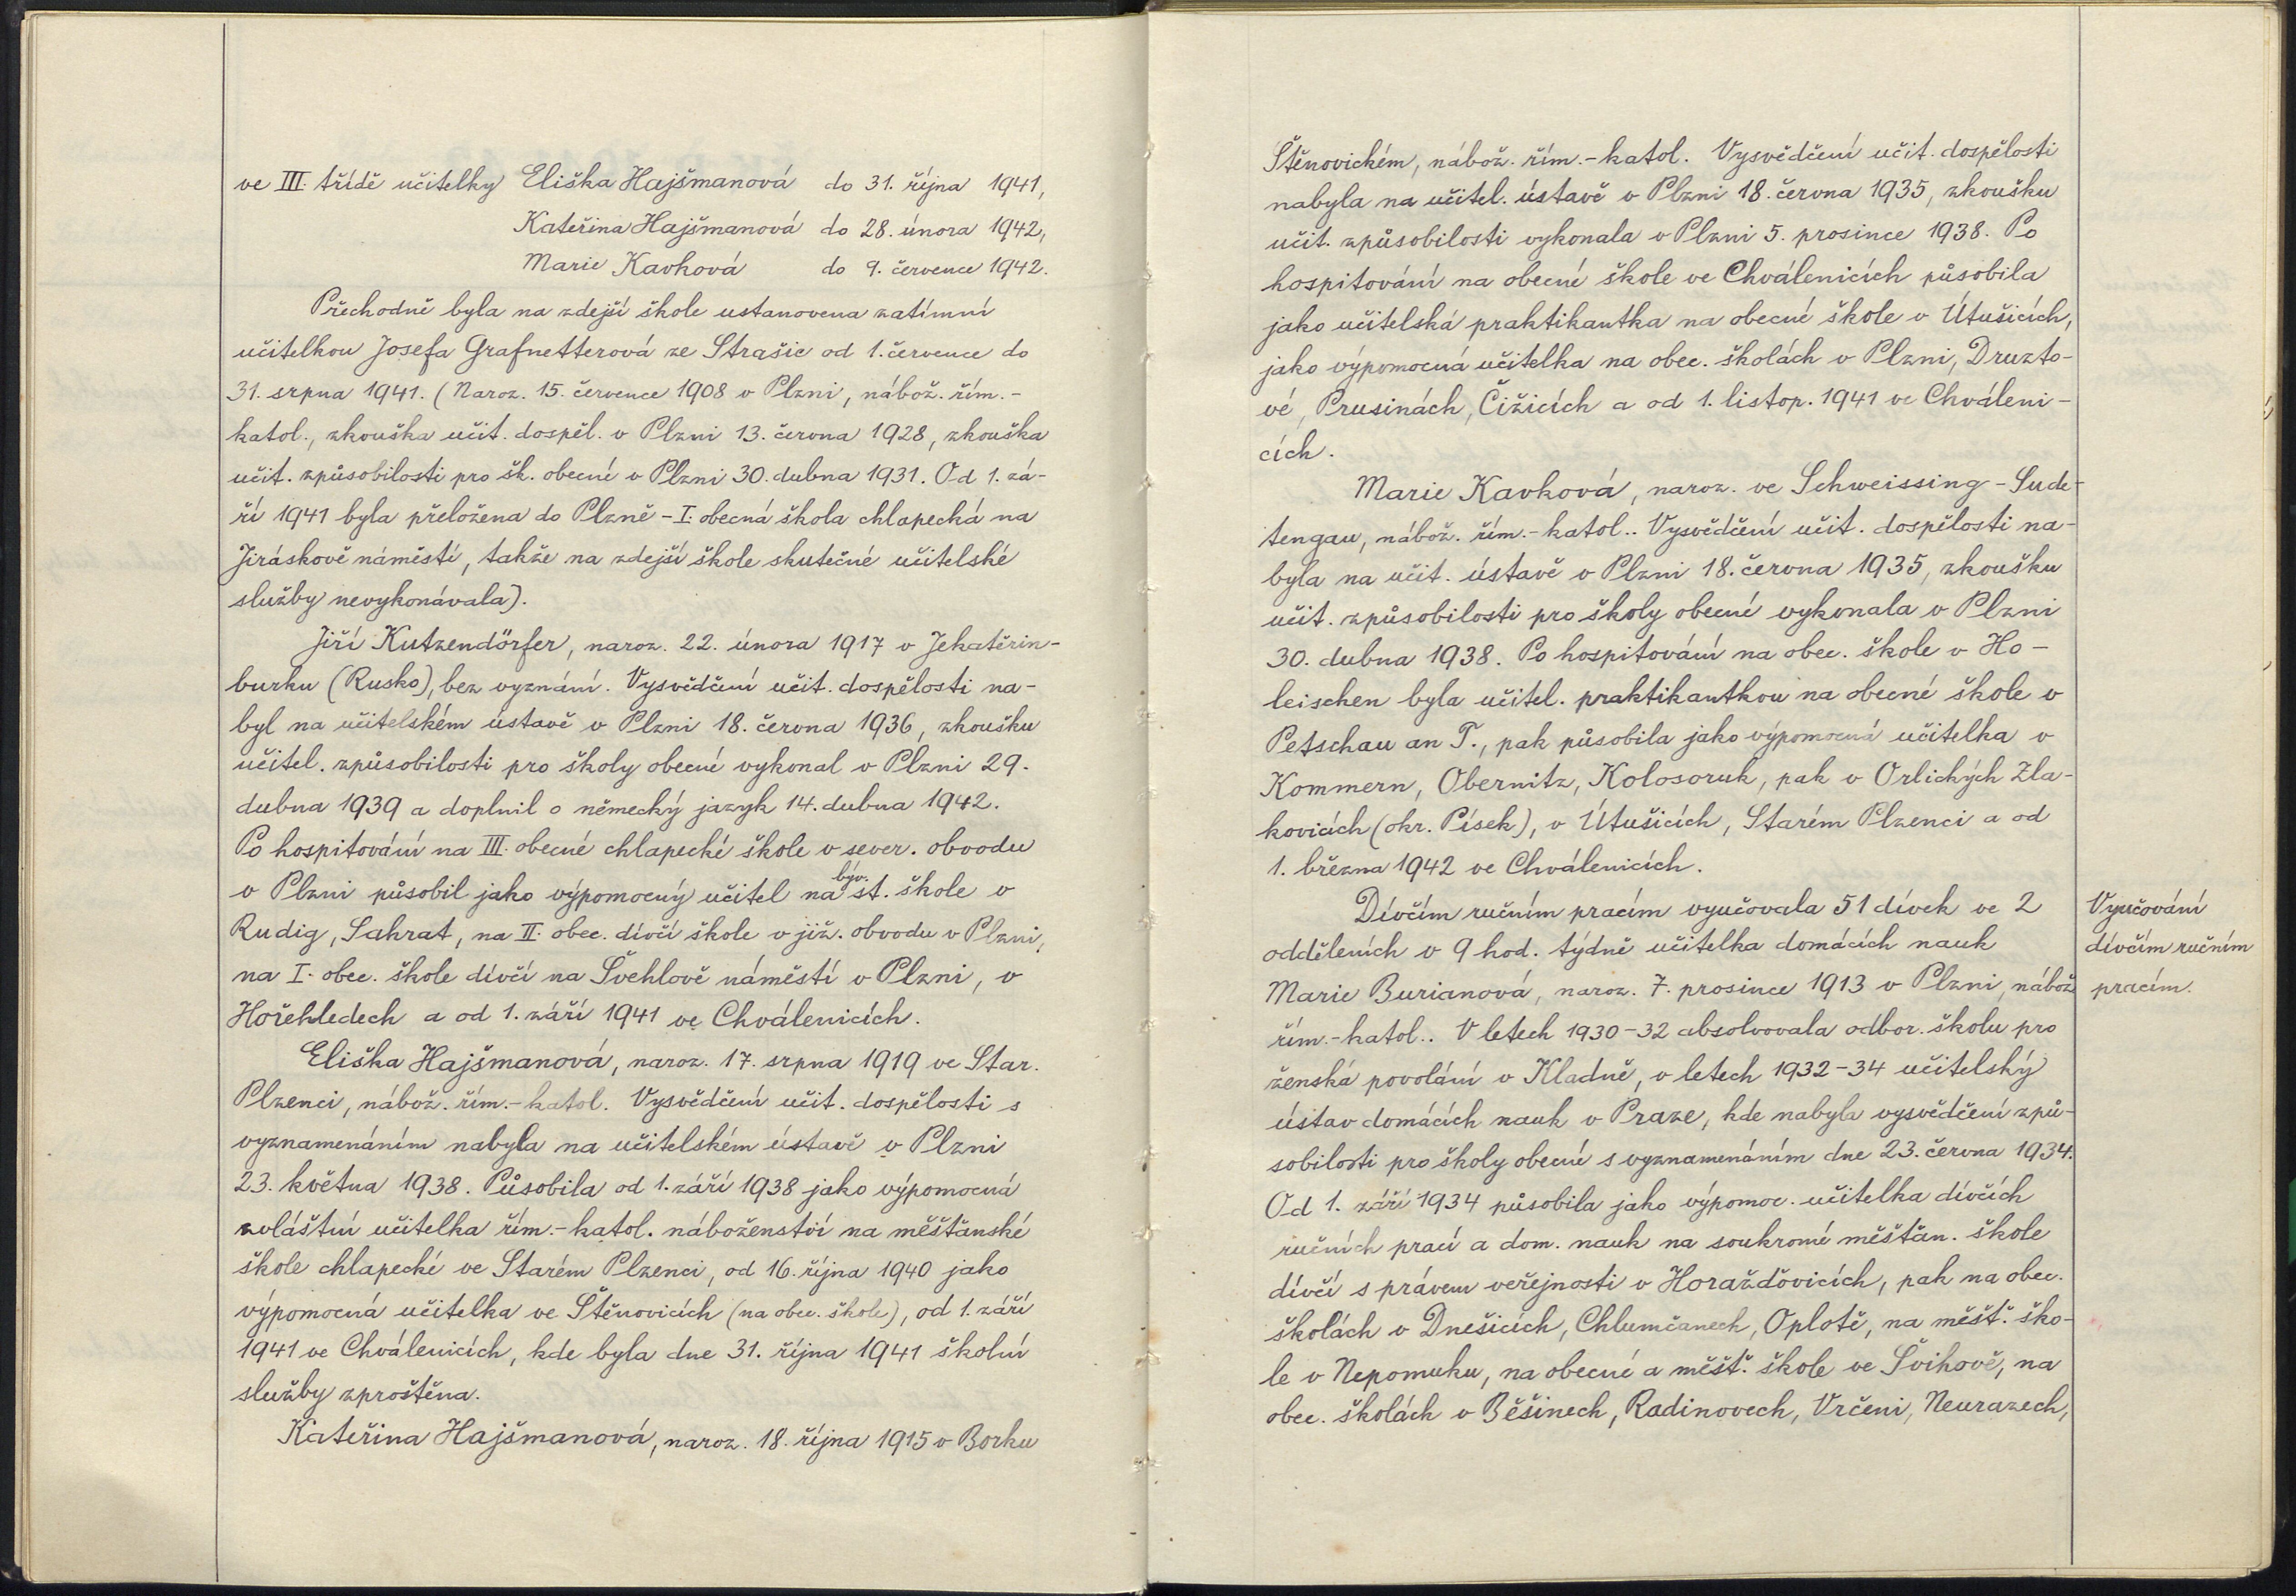 ve III. třídě učitelky Eliška Hajšmanová do 31. října 1941,
Kateřina Hajšmanová do 28. února 1942,
Marie Kavková do 9. července 1942.
Přechodně byla na zdejší škole ustanovena zatímní
učitelkou Josefa Grafnetterová ze Strašic od 1. července do
31. srpna 1941. (Naroz. 15. července 1908 v Plzni, nábož. řím.-
katol., zkouška učit. dospěl. v Plzni 13. června 1928, zkouška
učit. způsobilosti pro šk. obecné v Plzni 30. dubna 1931. Od 1. zá-
ří 1941 byla přeložena do Plzně - I. obecná škola chlapecká na
Jiráskově náměstí, takže na zdejší škole skutečné učitelské
služby nevykonávala).
Jiří Kutzendörfer, naroz. 22. února 1917 v Jekatěrin-
burku (Rusko), bez vyznání. Vysvědčení učit. dospělosti na-
byl na učitelském ústavě v Plzni 18. června 1936, zkoušku
učitel. způsobilosti pro školy obecné vykonal v Plzni 29.
dubna 1939 a doplnil o německý jazyk 14. dubna 1942.
Po hospitování na III. obecné chlapecké škole v sever. obvodu
v Plzni působil jako výpomocný učitel na býv. st. škole v
Rudig, Sahrat, na II. obec. dívčí škole v již. obvodu v Plzni,
na I. obec. škole dívčí na Švehlově náměstí v Plzni, v
Hořehledech a od 1. září 1941 ve Chválenicích.
Eliška Hajšmanová, naroz. 17. srpna 1919 ve Star.
Plzenci, nábož. řím.-katol. Vysvědčení učit. dospělosti s
vyznamenáním nabyla na učitelském ústavě v Plzni
23. května 1938. Působila od 1. září 1938 jako výpomocná
zvláštní učitelka řím.-katol. náboženství na měšťanské
škole chlapecké ve Starém Plzenci, od 16. října 1940 jako
výpomocná učitelka ve Štěnovicích (na obec. škole), od 1. září
1941 ve Chválenicích, kde byla dne 31. října 1941 školní
služby zproštěna.
Kateřina Hajšmanová, naroz. 18. října 1915 v Borku
Štěnovickém, nábož. řím.-katol. Vysvědčení učit. dospělosti
nabyla na učitel. ústavě v Plzni 18. června 1935, zkoušku
učit. způsobilosti vykonala v Plzni 5. prosince 1938. Po
hospitování na obecné škole ve Chválenicích působila
jako učitelská praktikantka na obecné škole v Útušicích,
jako výpomocná učitelka na obec. školách v Plzni, Druzto-
vé, Prusinách, Čižicích a od 1. listop. 1941 ve Chváleni-
cích.
Marie Kavková, naroz. ve Schweissing - Sude-
tengau, nábož. řím.-katol.. Vysvědčení učit. dospělosti na-
byla na učit. ústavě v Plzni 18. června 1935, zkoušku
učit. způsobilosti pro školy obecné vykonala v Plzni
30. dubna 1938. Po hospitování na obec. škole v Ho-
leischen byla učitel. praktikantkou na obecné škole v
Petschau an T., pak působila jako výpomocná učitelka v
Kommern, Obernitz, Kolosoruk, pak v Orlických Zla-
kovicích (okr. Písek), v Útušicích, Starém Plzenci a od
1. března 1942 ve Chválenicích.
Dívčím ručním pracím vyučovala 51 dívek ve 2
odděleních v 9 hod. týdně učitelka domácích nauk
Marie Burianová, naroz. 7. prosince 1913 v Plzni, nábož.
řím.-katol.. V letech 1930-32 absolvovala odbor. školu pro
ženská povolání v Kladně, v letech 1932-34 učitelský
ústav domácích nauk v Praze, kde nabyla vysvědčení způ-
sobilosti pro školy obecné s vyznamenáním dne 23. června 1934.
Od 1. září 1934 působila jako výpomoc. učitelka dívčích
ručních prací a dom. nauk na soukromé měšťan. škole
dívčí s právem veřejnosti v Horažďovicích, pak na obec.
školách v Dnešicích, Chlumčanech, Oplotě, na měšť. ško-
le v Nepomuku, na obecné a měšť. škole ve Švihově, na
obec. školách v Běšinech, Radinovech, Vrčeni, Neurazech,
Vyučování
dívčím ručním
pracím.